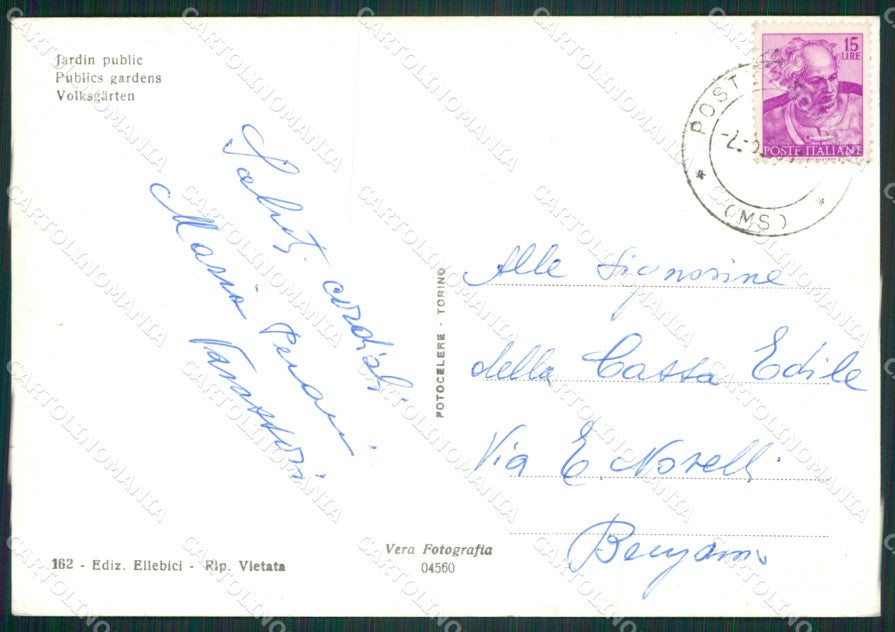 Jardin public
Publics gardens
Volksgärten
Saluti cordiali
Maria
15
LIRE
POSTE ITALIANE
POST
(MS)
Alle Signorine
della Cassa Edile
Via E. Novelli
FOTOCELERE - TORINO
Vera Fotografia
04560
162 - Ediz. Ellebici - Rip. Vietata
CARTOLINOMANIA